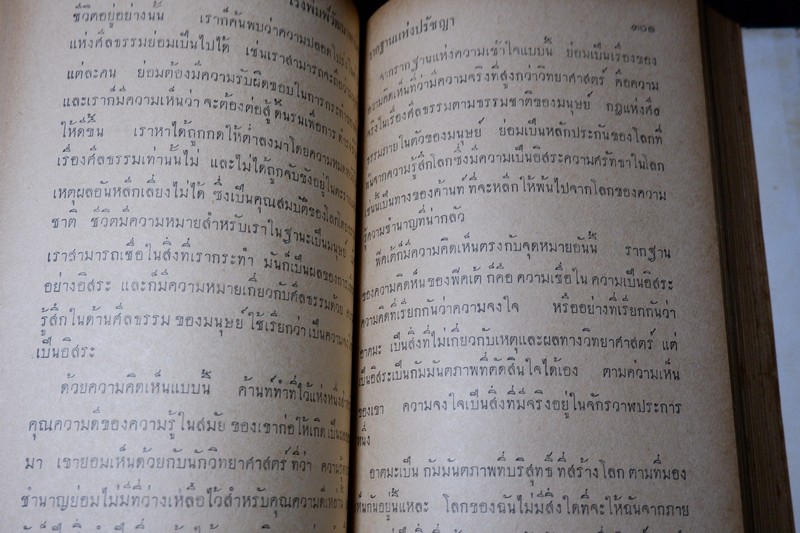 โรงพิมพ์รัฒนา
ชีวิตอยู่อย่างนั้น เราก็ค้นพบว่าความปลอดโปร่ง
แห่งศีลธรรมย่อมเป็นไปได้ เช่นเราสามารถจะถือว่า
แต่ละคน ย่อมต้องมีความรับผิดชอบในการกระทำ
และเราก็มีความเห็นว่า จะต้องต่อสู้ ดิ้นรนเพื่อการ
ให้ดีขึ้น เราหาได้ถูกกดให้ต่ำลงมาโดยความหมด
เรื่องศีลธรรมเท่านั้นไม่ และไม่ได้ถูกจับขังอยู่ใน
เหตุผลอันหลีกเลี่ยงไม่ได้ ซึ่งเป็นคุณสมบัติของโลกโดย
ชาติ ชีวิตมีความหมายสำหรับเราในฐานะเป็นมนุษย์
เราสามารถเชื่อในสิ่งที่เรากระทำ มันก็เป็นผลของการ
อย่างอิสระ และก็มีความหมายเกี่ยวกับศีลธรรมด้วย
รู้สึกในด้านศีลธรรม ของมนุษย์ ใช้เรียกว่าเป็นความ
เป็นอิสระ
ด้วยความคิดเห็นแบบนี้ ค้านท์ทำที่ไว้แห่งหนึ่ง
คุณความดีของความรู้ ในสมัย ของเขาก่อให้เกิด
มา เขาย่อมเห็นด้วยกับนักวิทยาศาสตร์ ที่ว่า
ชำนาญย่อมไม่มีที่ว่างเหลือไว้สำหรับคุณความดี
รากฐานแห่งปรัชญา ๓๐๑
จากรากฐานแห่งความเข้าใจแบบนี้ ย่อมเป็นเรื่องของ
ความคิดเห็นที่ว่ามีความจริงที่สูงกว่าวิทยาศาสตร์ คือความ
จริงในเรื่องศีลธรรมตามธรรมชาติของมนุษย์ กฎแห่งศีล
ธรรมภายในตัวของมนุษย์ ย่อมเป็นหลักประกันของโลกที่
พ้นจากความรู้สึกโลกซึ่งมีความเป็นอิสระความศรัทธาในโลก
เช่นนี้เป็นทางของค้านท์ ที่จะหลีกให้พ้นไปจากโลกของความ
ความชำนาญที่น่ากลัว
ฟิคเต้ก็มีความคิดเห็นตรงกับจุดหมายอันนี้ รากฐาน
ของความคิดเห็นของฟิคเต้ ก็คือ ความเชื่อใน ความเป็นอิสระ
ความคิดที่เรียกกันว่าความจงใจ หรืออย่างที่เรียกกันว่า
อาตมะ เป็นสิ่งที่ไม่เกี่ยวกับเหตุและผลทางวิทยาศาสตร์ แต่
เป็นอิสระเป็นกัมมันตภาพที่ตัดสินใจได้เอง ตามความเห็น
ของเขา ความจงใจเป็นสิ่งที่มีจริงอยู่ในจักรวาพประการ
หนึ่ง
อาตมะเป็น กัมมันตภาพที่บริสุทธิ์ ที่สร้างโลก ตามที่มอง
เห็นกันอยู่นี้แหละ โลกของฉันไม่มีสิ่งใดที่จะให้ฉันจากภาย